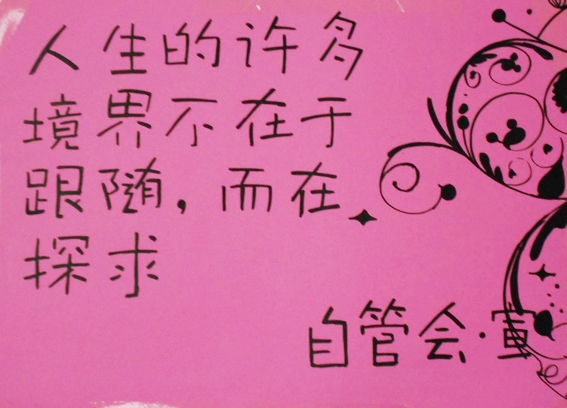 人生的许多
境界不在于
跟随，而在
探求
自管会·宣